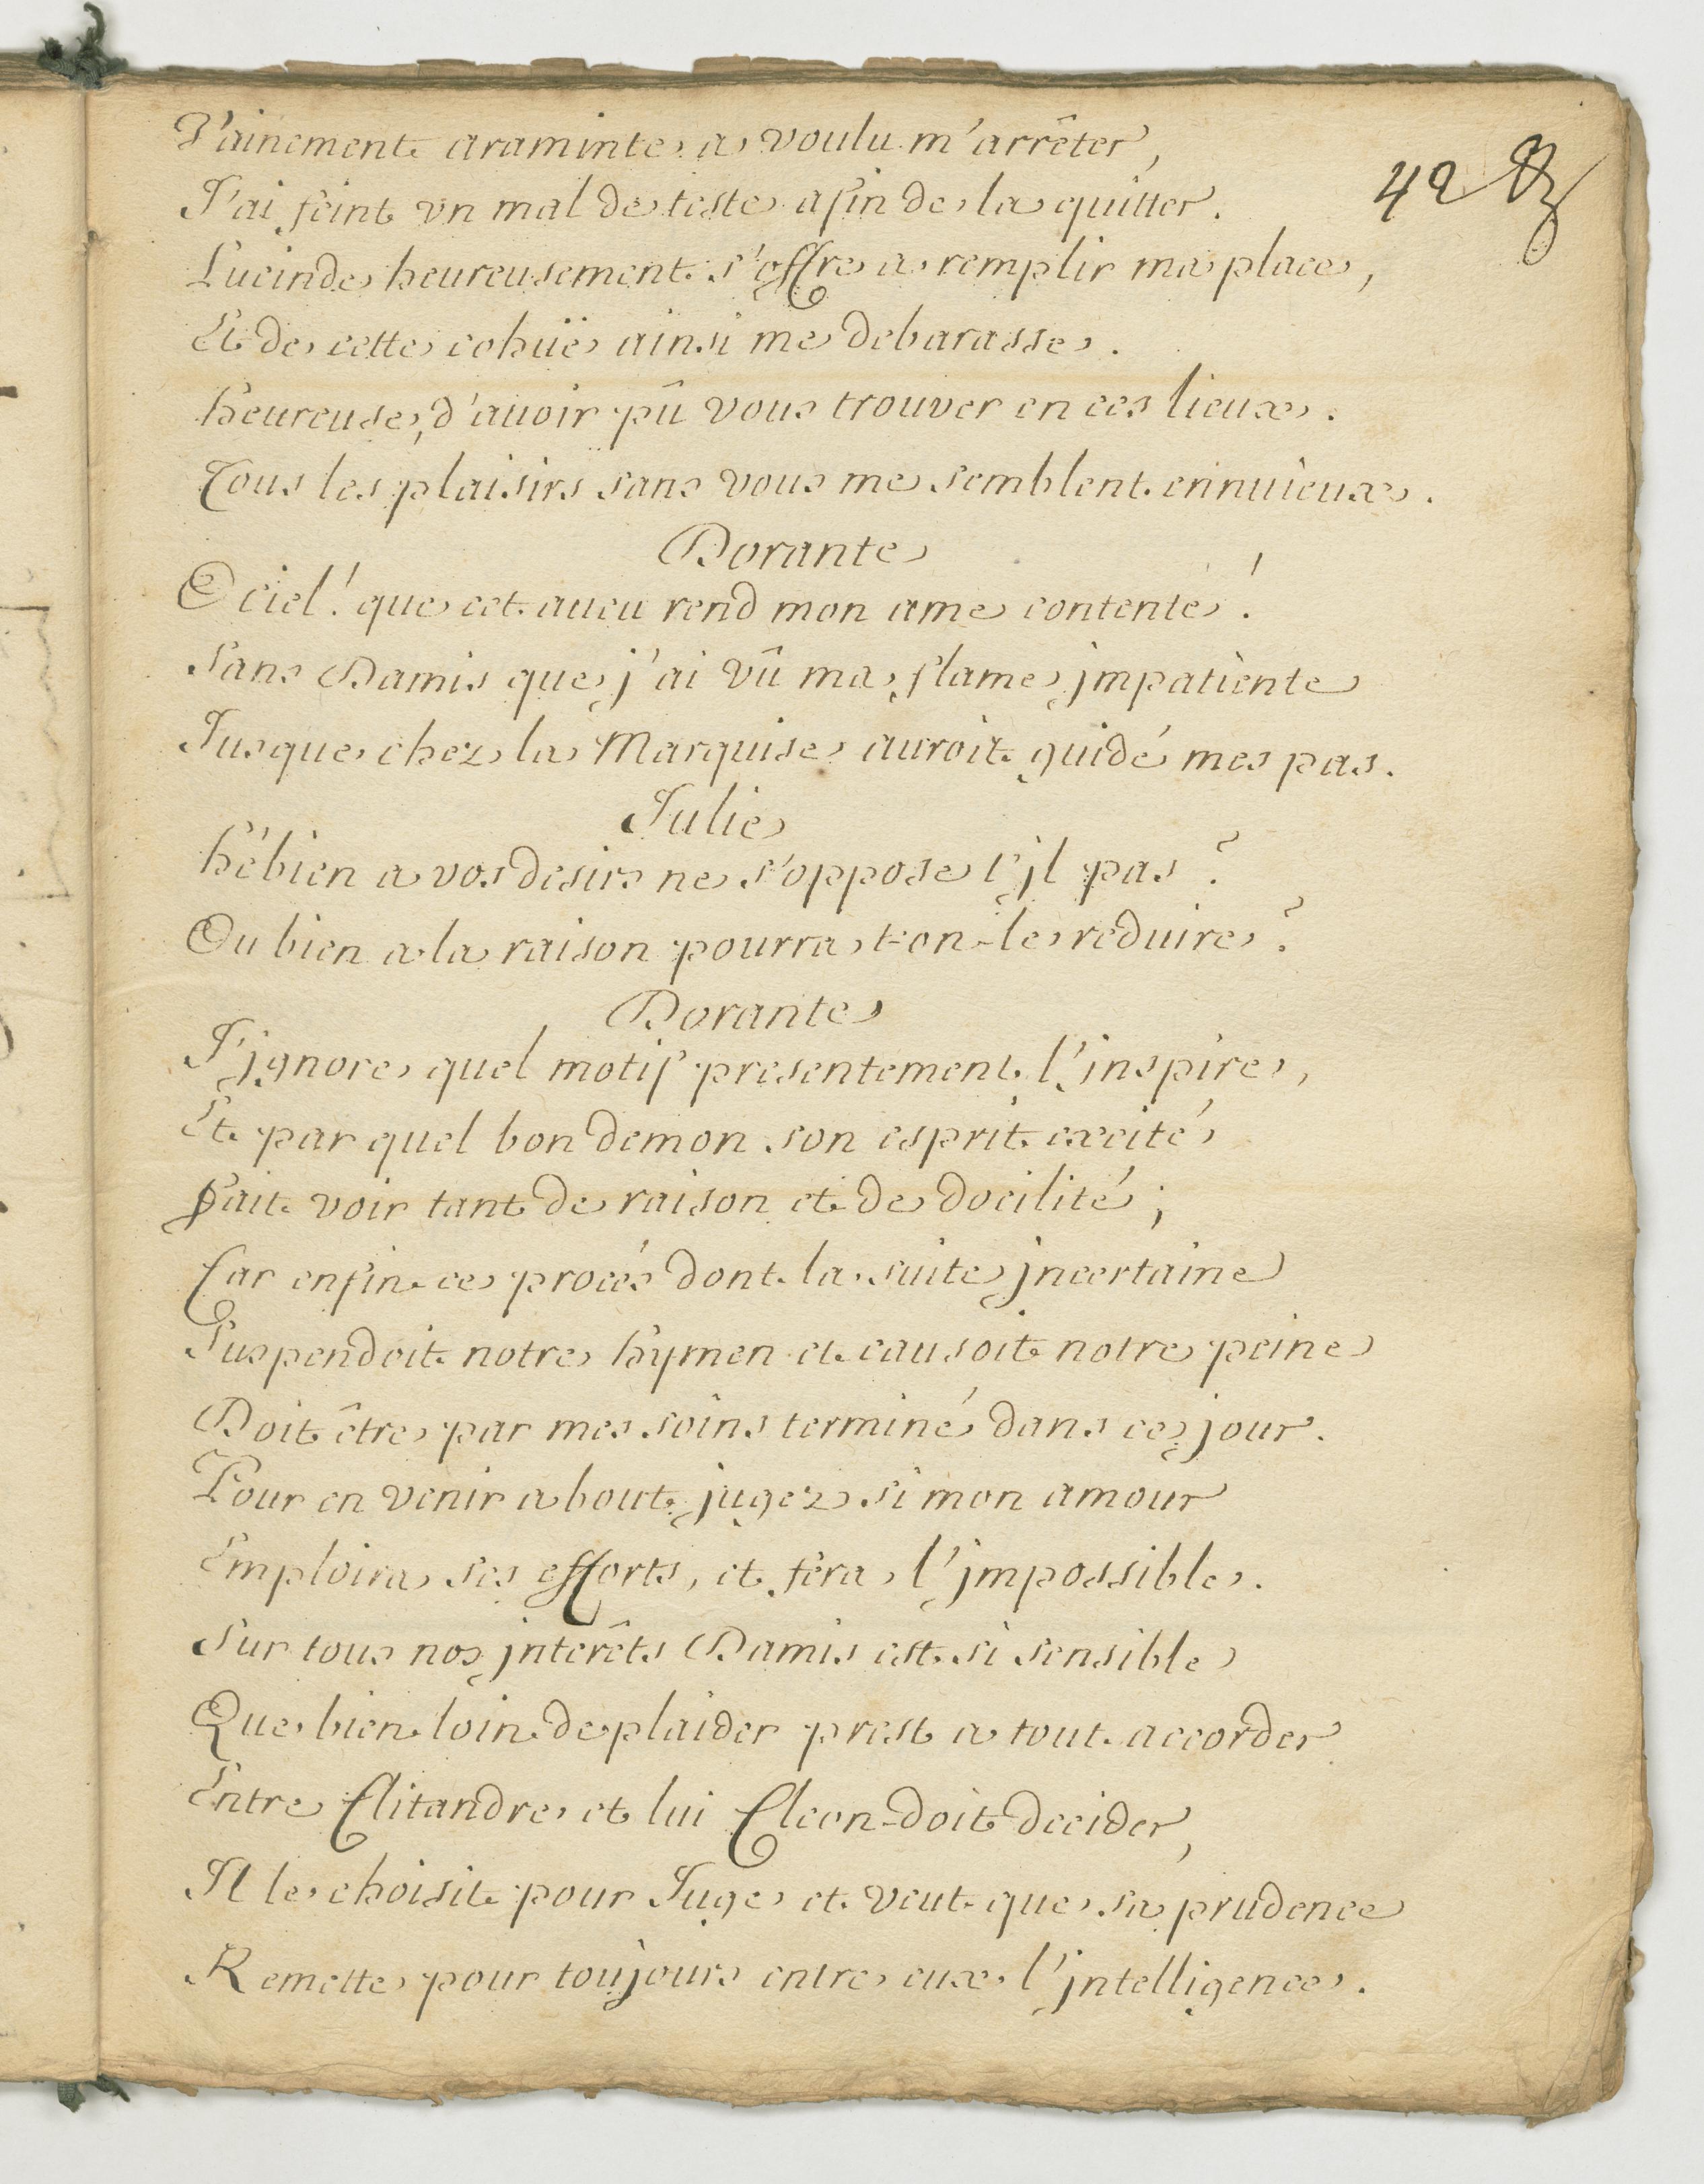 Vainement araminte a voulu m'arrêter,
42
J'ai feint vn mal de teste afin de la quitter.
Lucinde heureusement s'offre a remplir ma place,
Et de cette cohüe ainsi me debarasse.
heureuse, d'auoir pû vous trouver en ces lieux.
Tous les plaisirs sans vous me semblent ennuieux.
Dorante
O ciel! que cet aueu rend mon ame contente!
Sans Damis que j'ai vû ma flame jmpatiente
Jusque chez la Marquise auroit guidé mes pas.
Julie
hé bien a vos desirs ne s'oppose t'jl pas?
Ou bien a la raison pourra t-on le reduire?
Dorante
J'jgnore quel motif presentement l'jnspire,
Et par quel bon demon son esprit excité
Fait voir tant de raison et de docilité;
Car enfin ce procés dont la suite jncertaine
Suspendoit notre hymen et causoit notre peine
Doit être par mes soins terminé dans ce jour.
Pour en venir a bout jugez si mon amour
Emploira ses efforts, et fera l'jmpossible.
Sur tous nos jnterêts Damis est si sensible
Que bien loin de plaider prest a tout accorder
Entre Clitandre et lui Cleon doit decider,
Il le choisit pour Juge et veut que sa prudence
Remette pour toujours entre eux l'jntelligence.